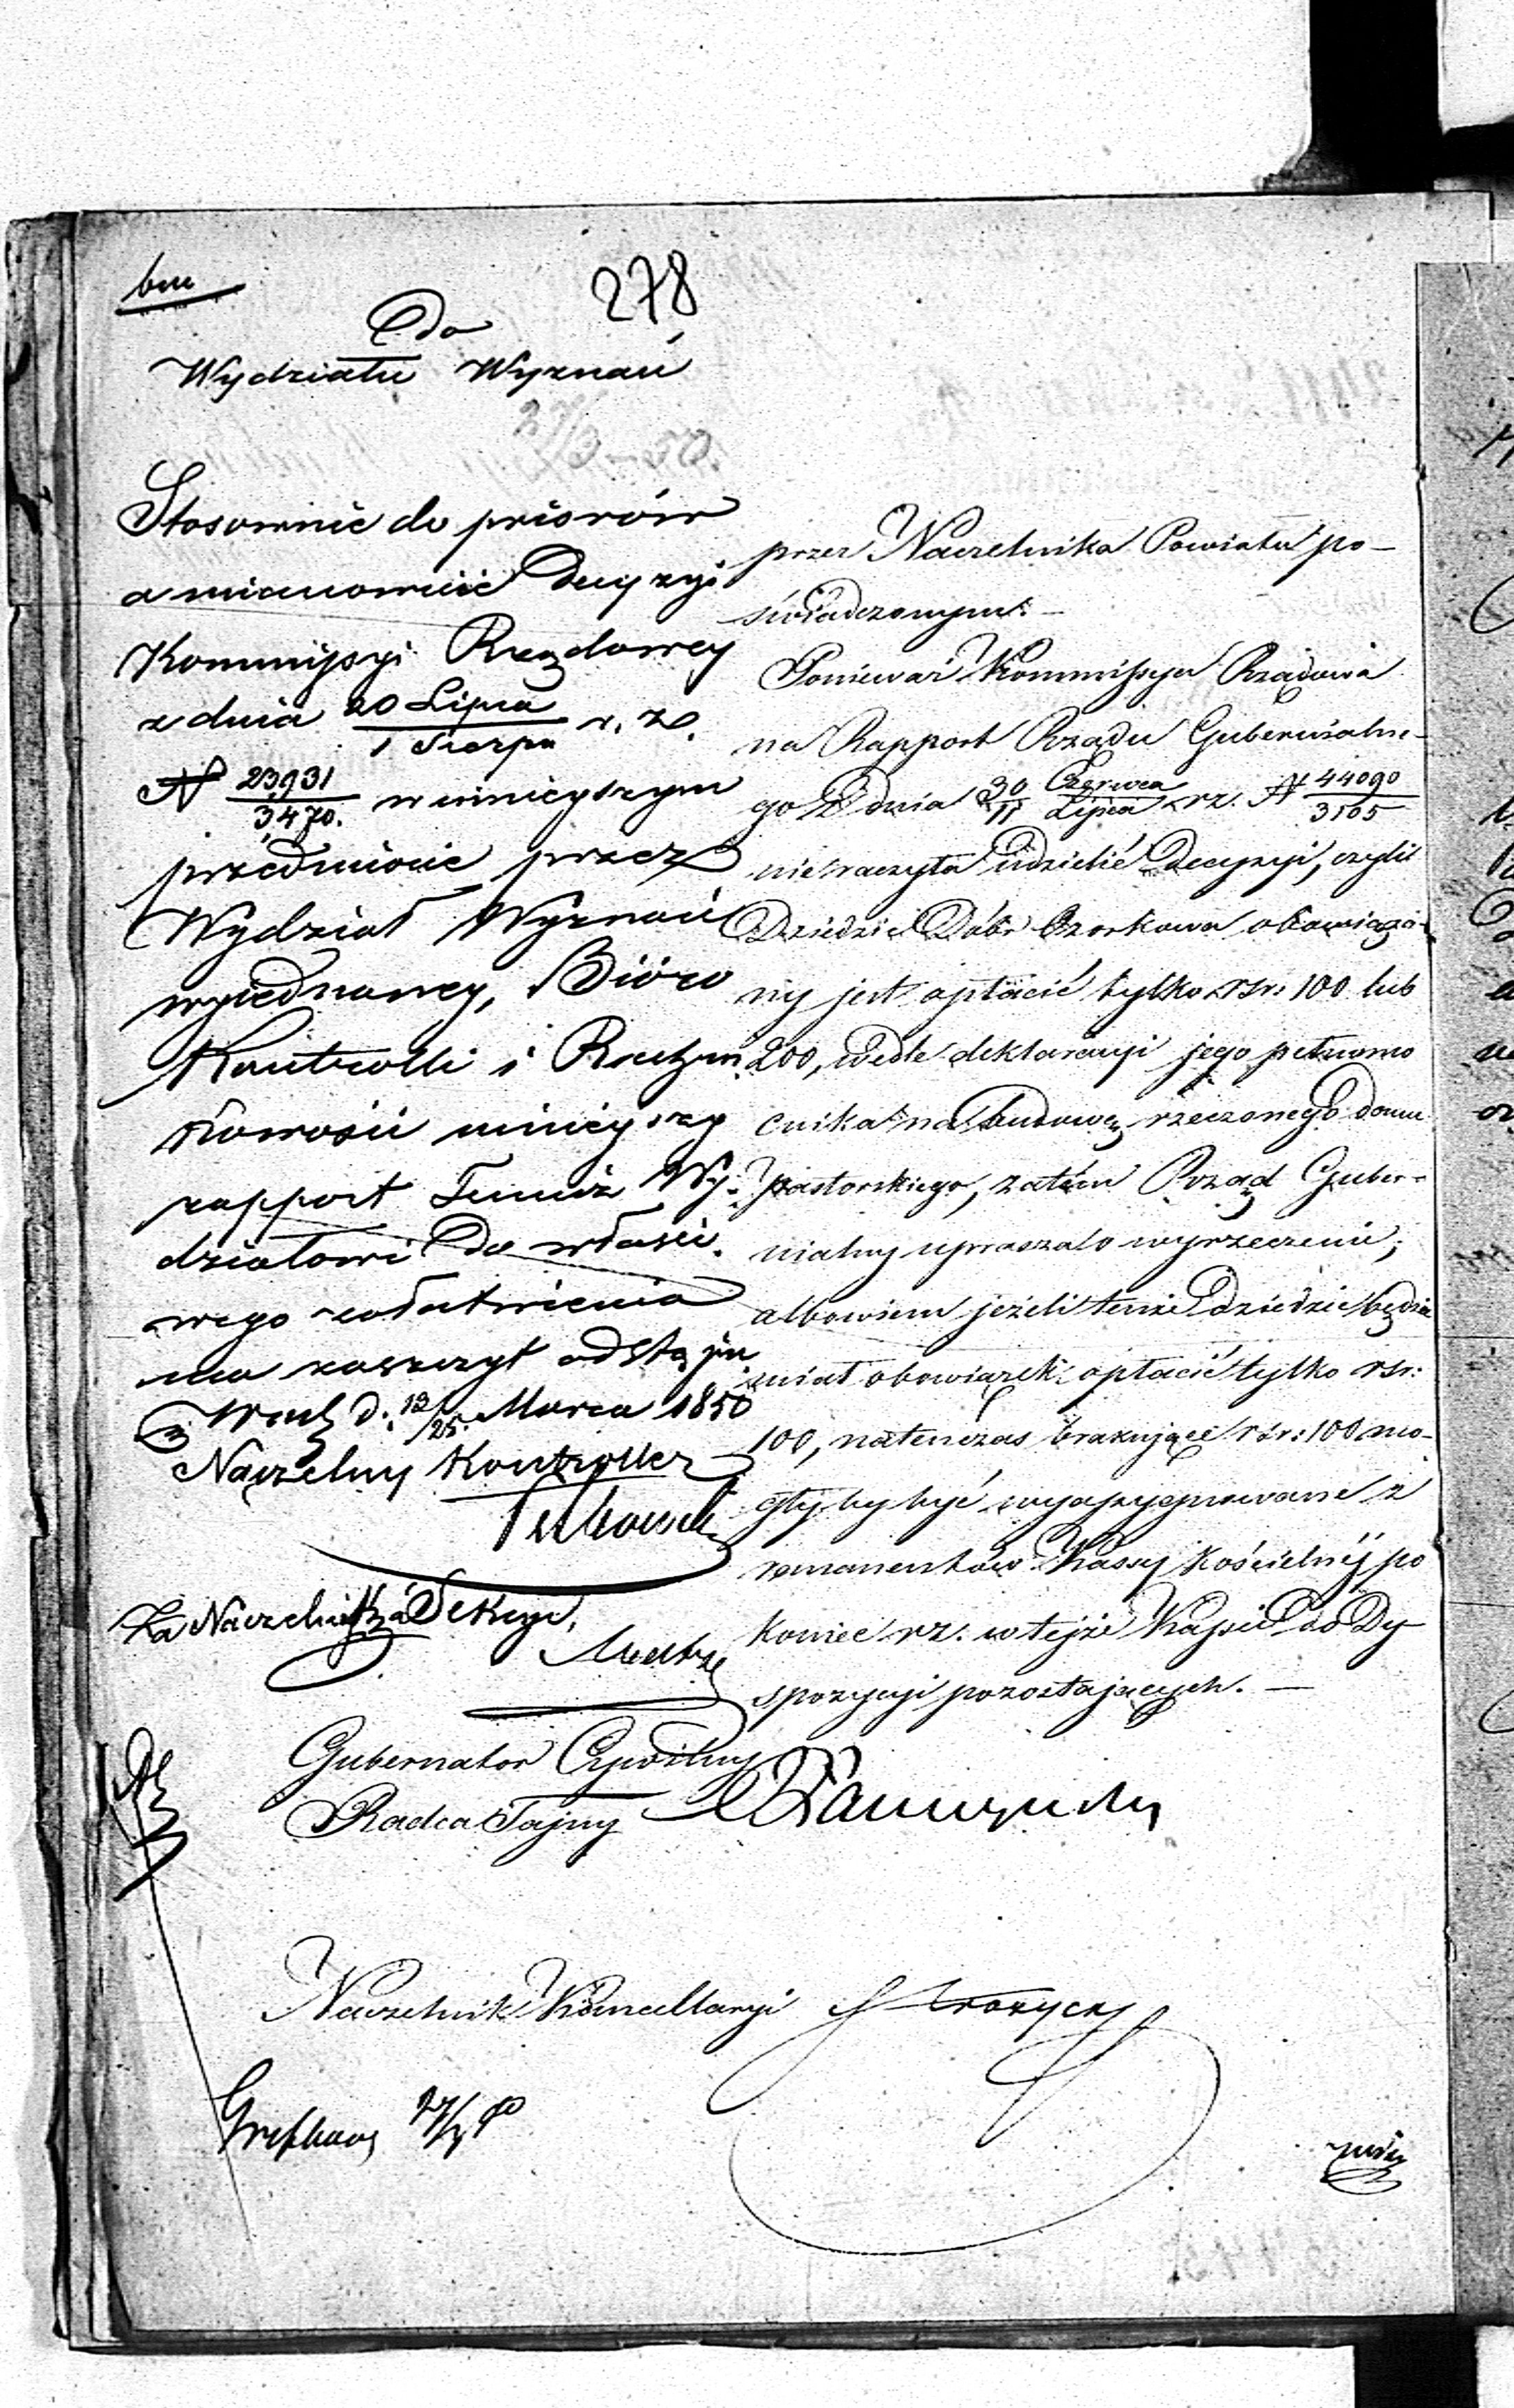 278
Do
Wydziału Wyznań
Stosownie do priorów
a mianowicie Decyzyi
Kommissyi Rządowey
z dnia 20 Lipca / 1 Sierpn r. z.
N 23931 / 3470. w ninieyszym
przedmiocie przez
Wydział Wyznań
wyiednaney, Bióro
Kontrolli i Rachun
kowości ninieyszy
rapport Temuż Wy-
działowi do właści-
wego załatwienia
ma zaszczyt odstąpić
w Warsz d. 13/25. Marca 1850
Naczelny Kontroller
Za Naczelnika Sekcyi,
przez Naczelnika Powiatu po-
świadczonym. —
Ponieważ Kommissya Rządowa
na Rapport Rządu Gubernialne-
go z dnia 30 Czerwca / 11 Lipca rz. N 44090 / 3105
nieraczyła udzielić Decyzyi, czyli
Dziedzic Dóbr Ozorkowa obowiąza-
ny jest opłacić tylko rsr: 100 lub
200, wedle deklaracyi jego pełnomo
cnika na budowę rzeczonego domu
pastorskiego, zatém Rząd Guber-
nialny uprasza o wyrzeczenie;
albowiem jeżeli tenże dziedzic będzie
miał obowiązek opłacić tylko rsr:
100, natenczas brakujące rsr: 100 mo-
głyby być wyassygnowane z
remanentów Kassy Kościelnéj po
koniec rz. w tejże Kassie do Dy
spozycyi pozostających. —
Gubernator Cywilny
Radca Tajny
Naczelnik Kancellaryi